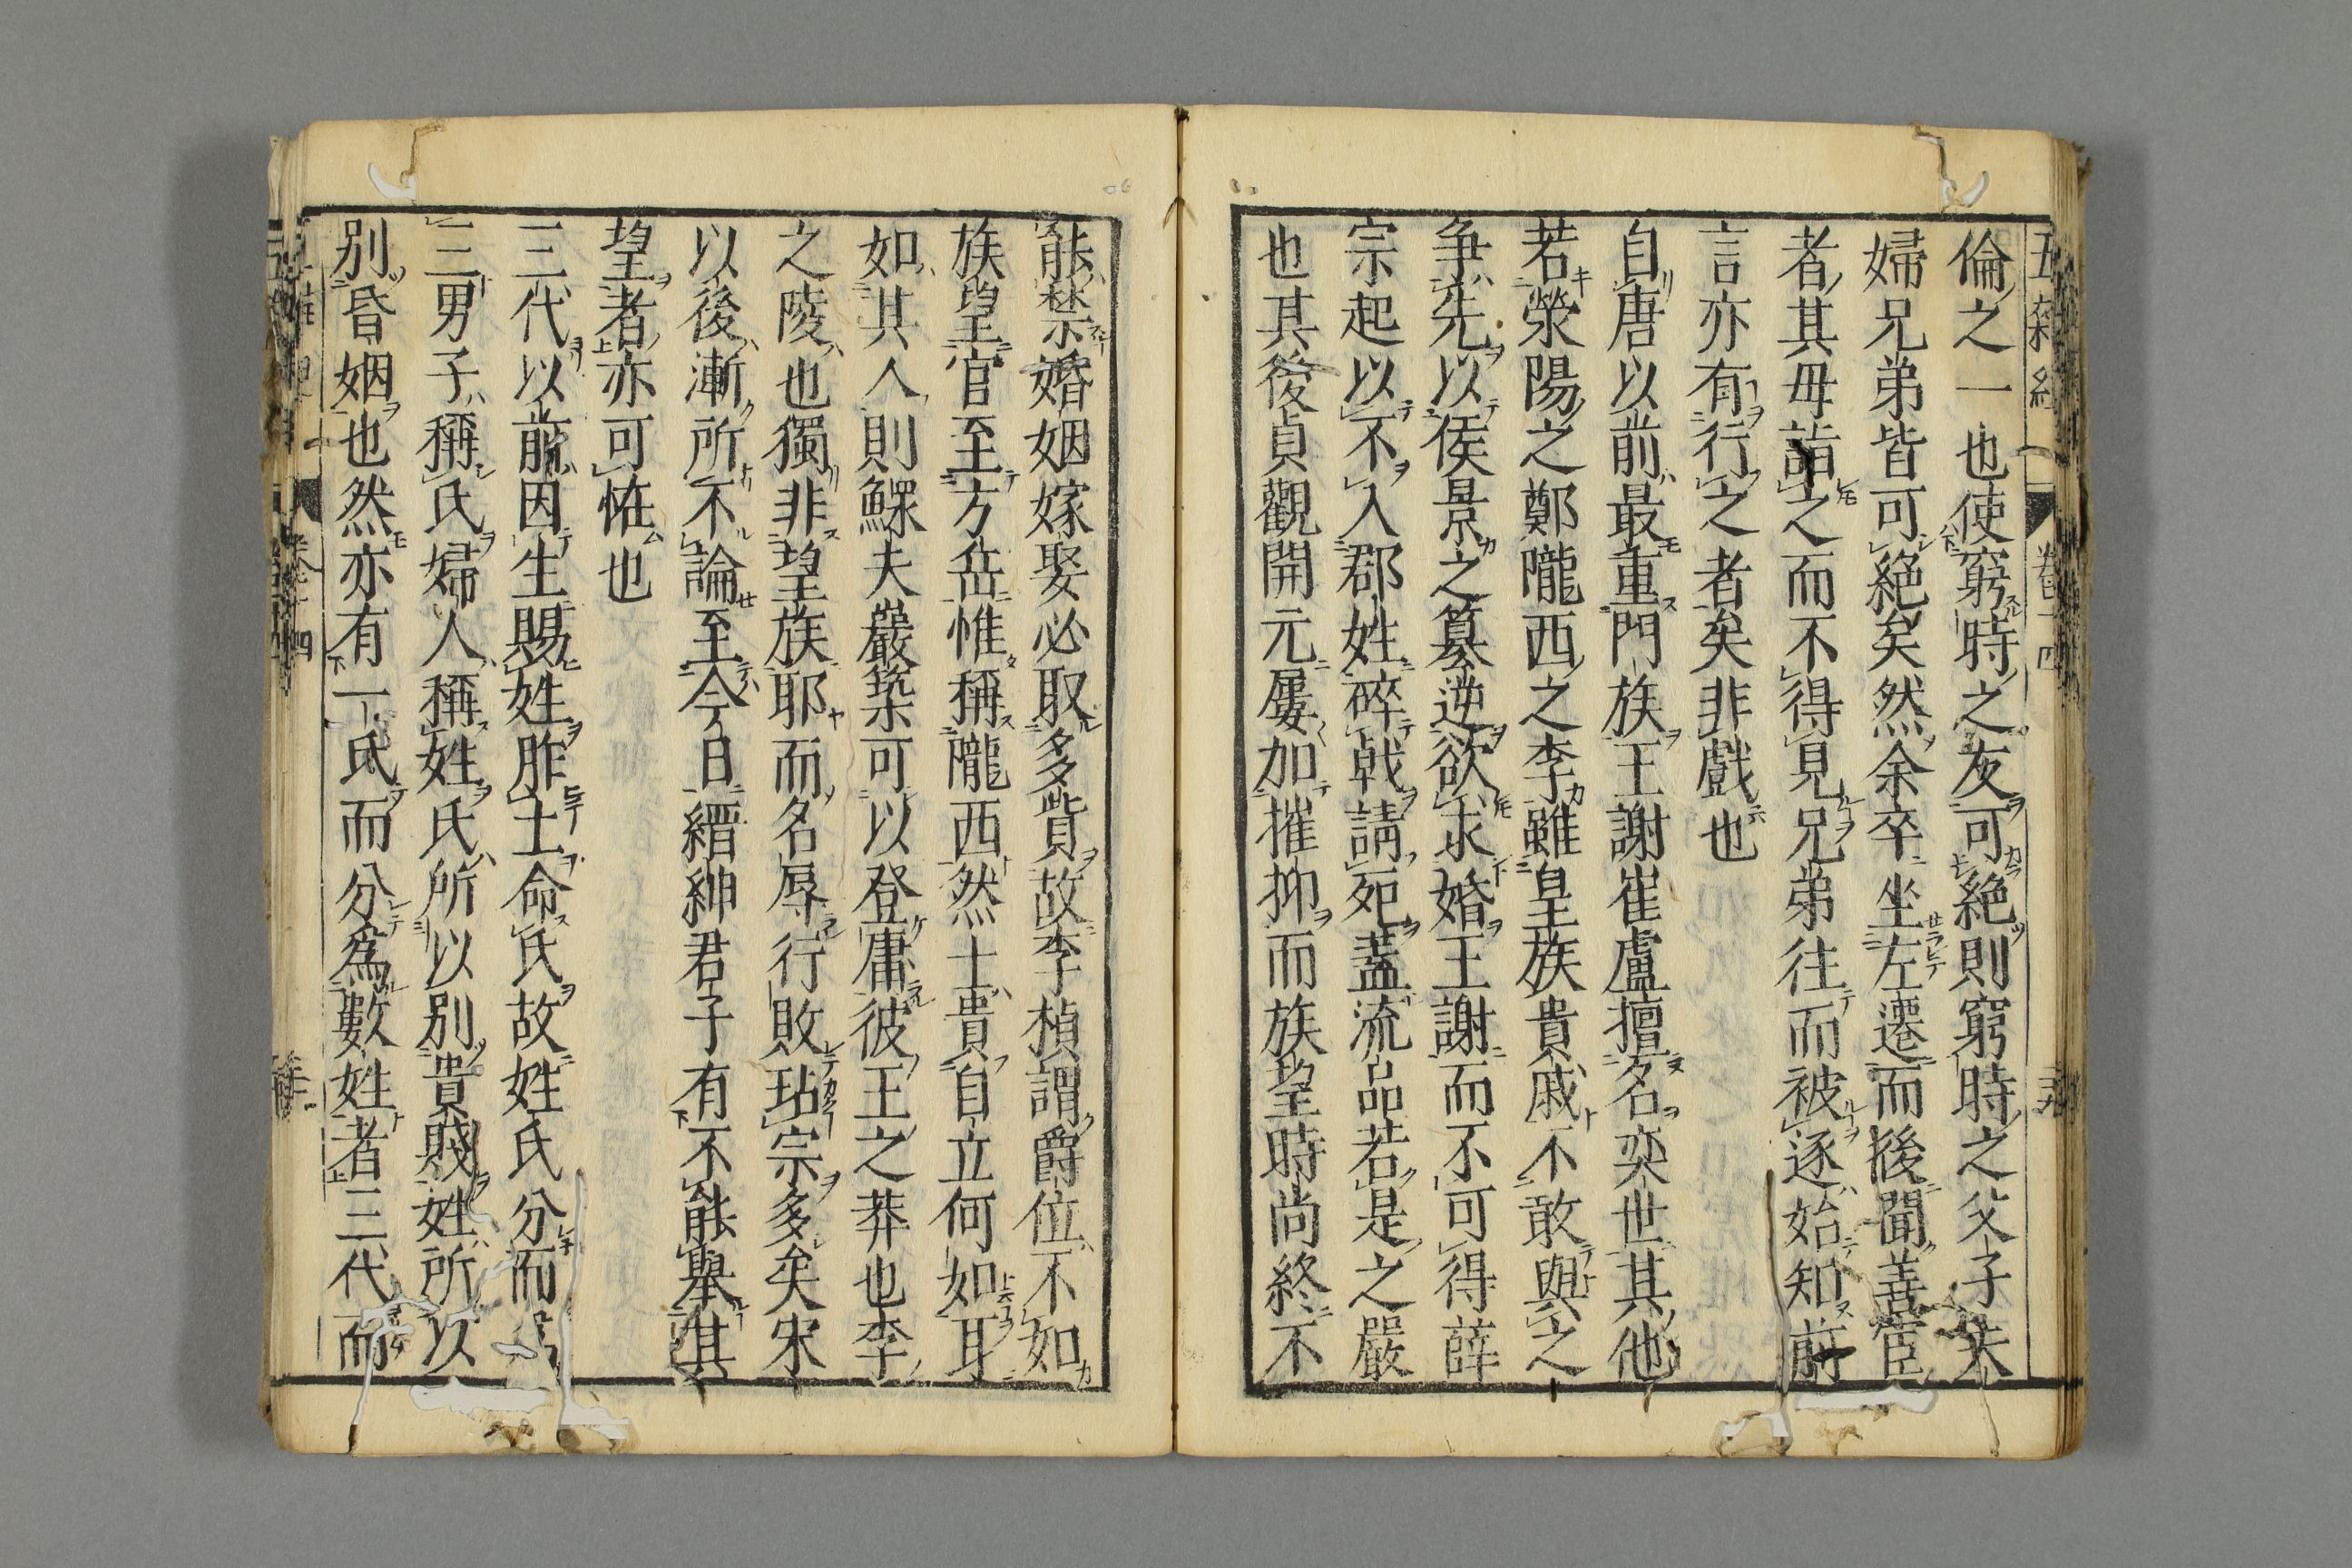 五雜組 卷十四
倫之一也使窮時之友可絶則窮時之父子夫
婦兄弟皆可絶矣然余卒坐左遷而後聞善宦
者其母詣之而不得見兄弟往而被逐始知前
言亦有行之者矣非戲也
自唐以前最重門族王謝崔盧擅名奕世其他
若滎陽之鄭隴西之李雖皇族貴戚不敢與之
争先以侯景之篡逆欲求婚王謝而不可得薛
宗起以不入郡姓碎戟請死蓋流品若是之嚴
也其後貞觀開元屢加摧抑而族望時尚終不
能禁婚姻嫁娶必取多貲故李楨謂爵位不如
族望官至方岳惟稱隴西然士貴自立何如耳
如其人則鰥夫嚴築可以登庸彼王之莽也李
之陵也獨非望族耶而名辱行敗玷宗多矣宋
以後漸所不論至今日縉紳君子有不能舉其
望者亦可恠也
三代以前因生賜姓胙土命氏故姓氏分而
三男子稱氏婦人稱姓氏所以別貴賤姓所以
別昏姻也然亦有一氏而分爲數姓者三代而